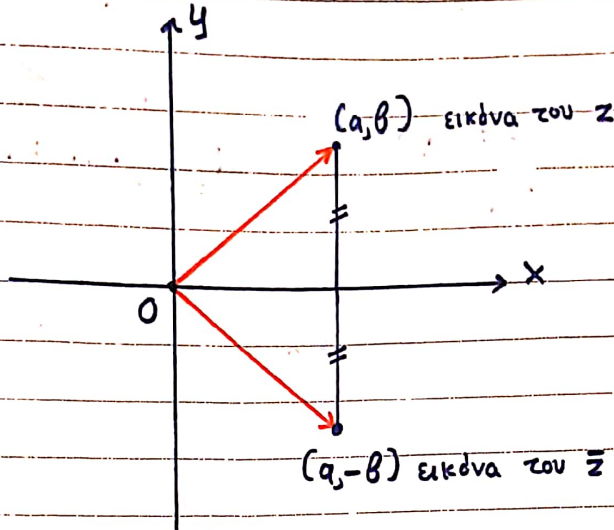 y
(α,β) εικόνα του z
x
0
(α,-β) εικόνα του z̄